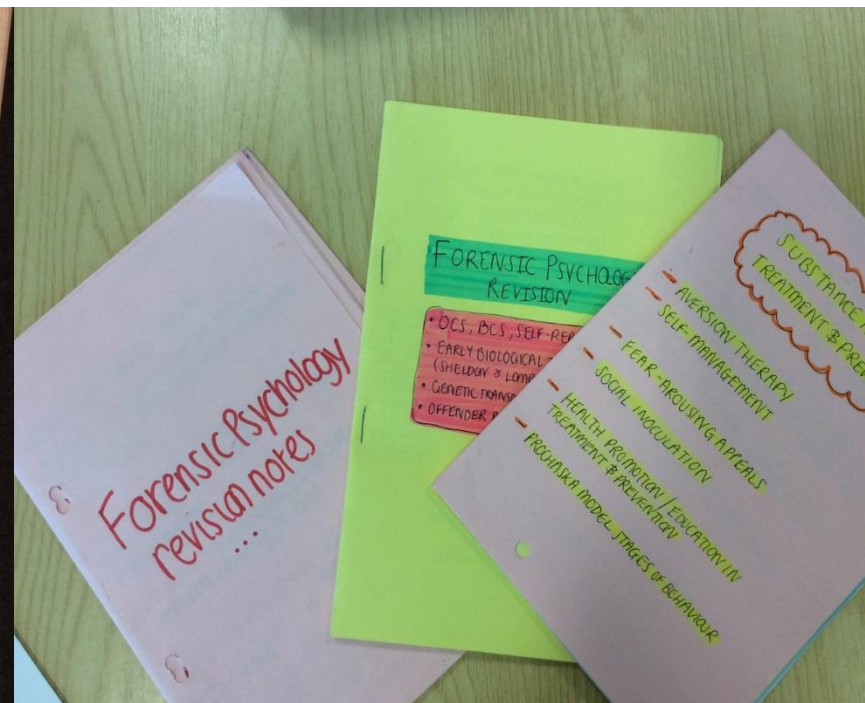 Forensic Psychology
revision notes
...
FORENSIC PSYCHOLOG
REVISION
• OCS, BCS, SELF-REP
• EARLY BIOLOGICAL
(SHELDON & LOMB
• GENETIC TRANS
• OFFENDER P
SUBSTANCE
TREATMENT & PREV
- AVERSION THERAPY
- SELF-MANAGEMENT
- FEAR-AROUSING APPEALS
- SOCIAL INOCULATION
- HEALTH PROMOTION / EDUCATION IN
TREATMENT & PREVENTION
- PROCHASKA MODEL STAGES OF BEHAVIOUR